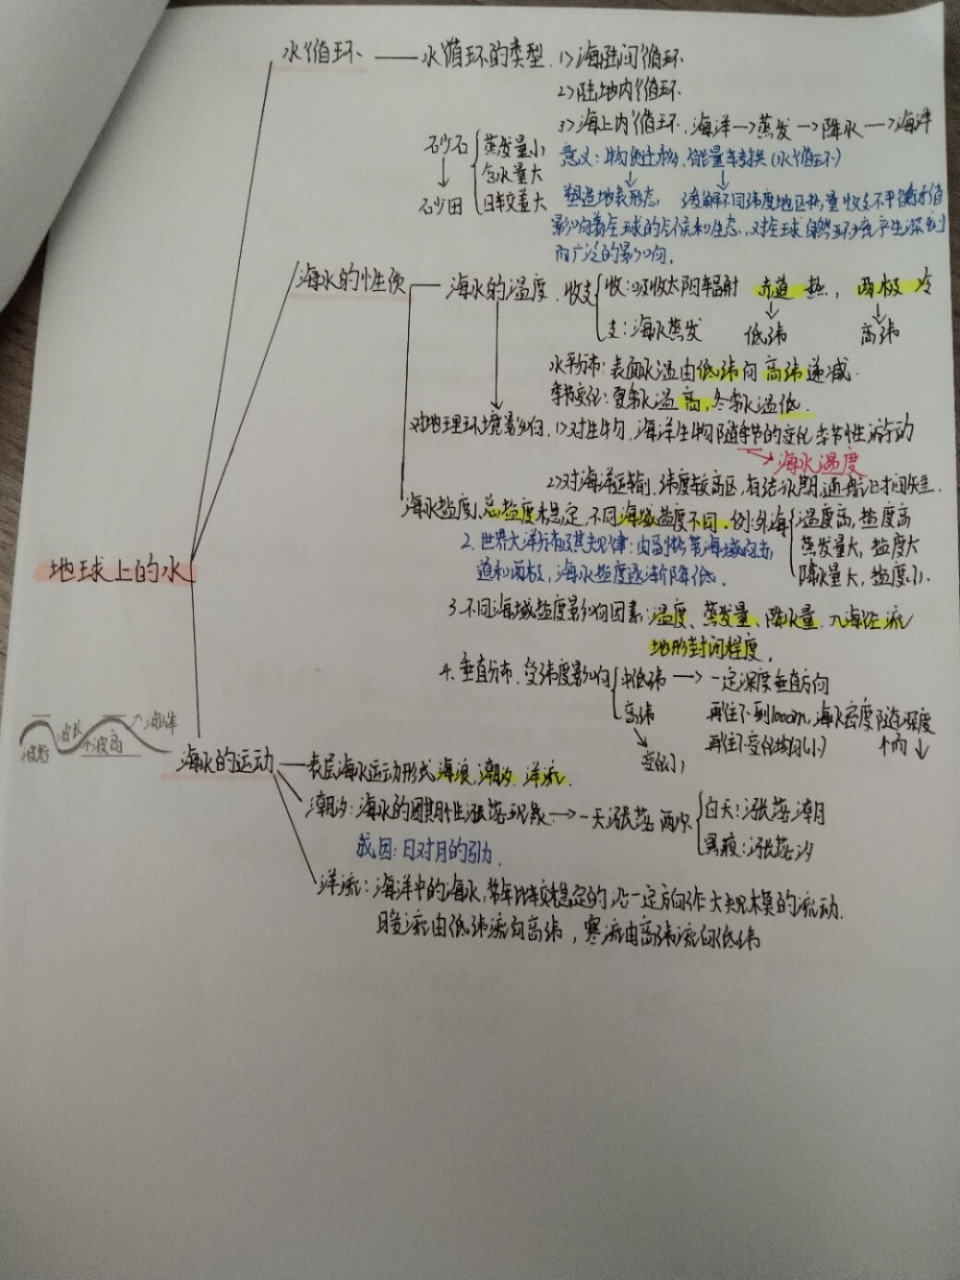 水循环 — 水循环的类型 1>海陆间循环
2>陆地内循环
3>海上内循环. 海洋→蒸发→降水→海洋
砂石 蒸发量小
含水量大
砂田 日较差大
意义: 物质迁移, 能量转换 (水循环)
塑造地表形态, 缓解不同纬度地区热量收支不平衡矛盾
影响着全球的气候和生态, 对全球自然环境产生深刻
而广泛的影响.
海水的性质 — 海水的温度. 收支 收: 吸收太阳辐射 赤道 热, 两极 冷
支: 海水蒸发 低纬 高纬
水平分布: 表面水温由低纬向高纬递减.
季节变化: 夏季水温高, 冬季水温低.
对地理环境影响. 1>对生物, 海洋生物随季节的变化 季节性游动
→海水温度
2>对海洋运输, 纬度较高区, 有结冰期, 通航时间短.
海水盐度 1. 总盐度稳定, 不同海域盐度不同. 例: 外海 温度高, 盐度高
蒸发量大, 盐度大
降水量大, 盐度小.
2. 世界大洋分布及其规律: 由副热带海域向赤
道和两极, 海水盐度逐渐降低.
地球上的水
3. 不同海域盐度影响因素: 温度、蒸发量、降水量. 入海径流
地形封闭程度.
4. 垂直分布. 受纬度影响 中低纬 → 一定深度垂直方向
高纬 再往下到1000m, 海水密度随深度
再往下变化均匀(小)
变化小
波长 海洋
波高
海水的运动 — 表层海水运动形式 海浪, 潮汐, 洋流.
潮汐: 海水的周期性涨落现象. → 一天涨落两次 白天: 涨落潮
黑夜: 涨落汐
成因: 日对月的引力.
洋流: 海洋中的海水, 常年比较稳定的沿一定方向作大规模的流动.
暖流由低纬流向高纬, 寒流由高纬流向低纬